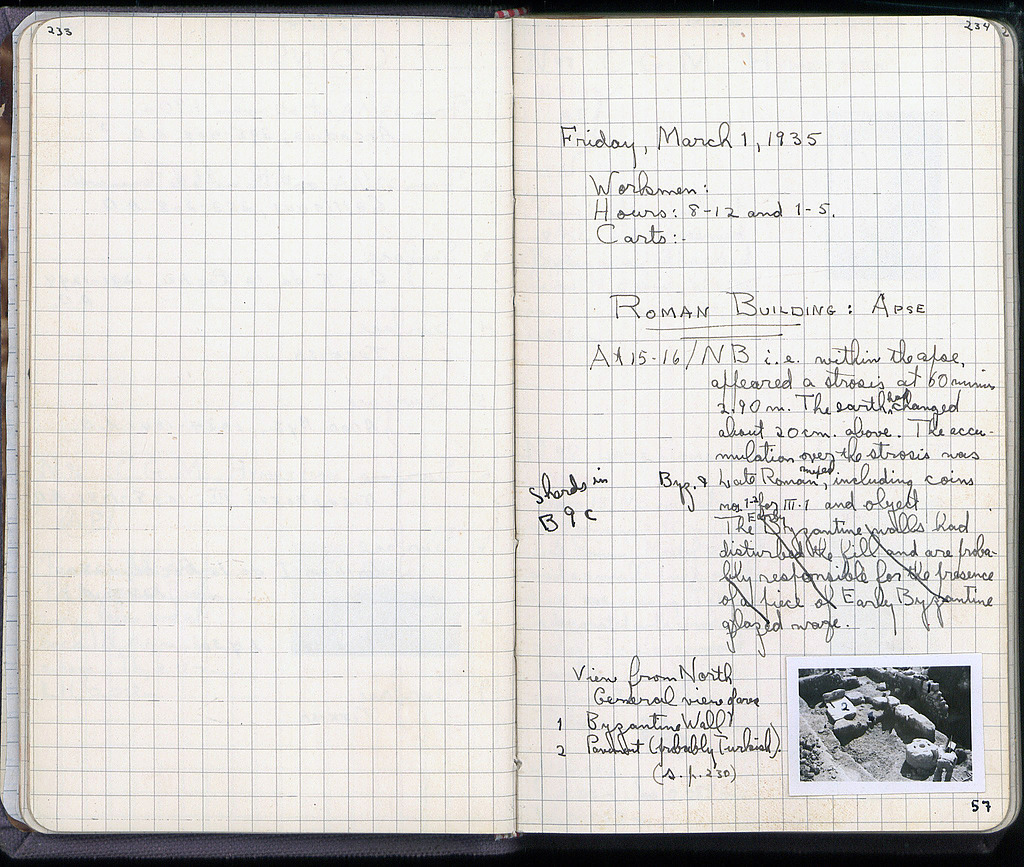 233
234
Friday, March 1, 1935
Worksmen:
Hours: 8-12 and 1-5.
Carts:-
ROMAN BUILDING: APSE
At 15-16/NB i.e. within the apse,
appeared a strosis at 60 minus
2.90 m. The earth had changed
about 20 cm. above. The accu-
mulation over the strosis was
Byz. & Late Roman mixed, including coins
nos 1-2 for III·1 and object
Shards in
B 9 c
The Early Byzantine walls had
disturbed the fill and are proba-
bly responsible for the presence
of a piece of Early Byzantine
glazed ware.
View from North
General view of area
1 Byzantine Wall?
2 Pavement (probably Turkish).
(s. p. 230)
1
2
57